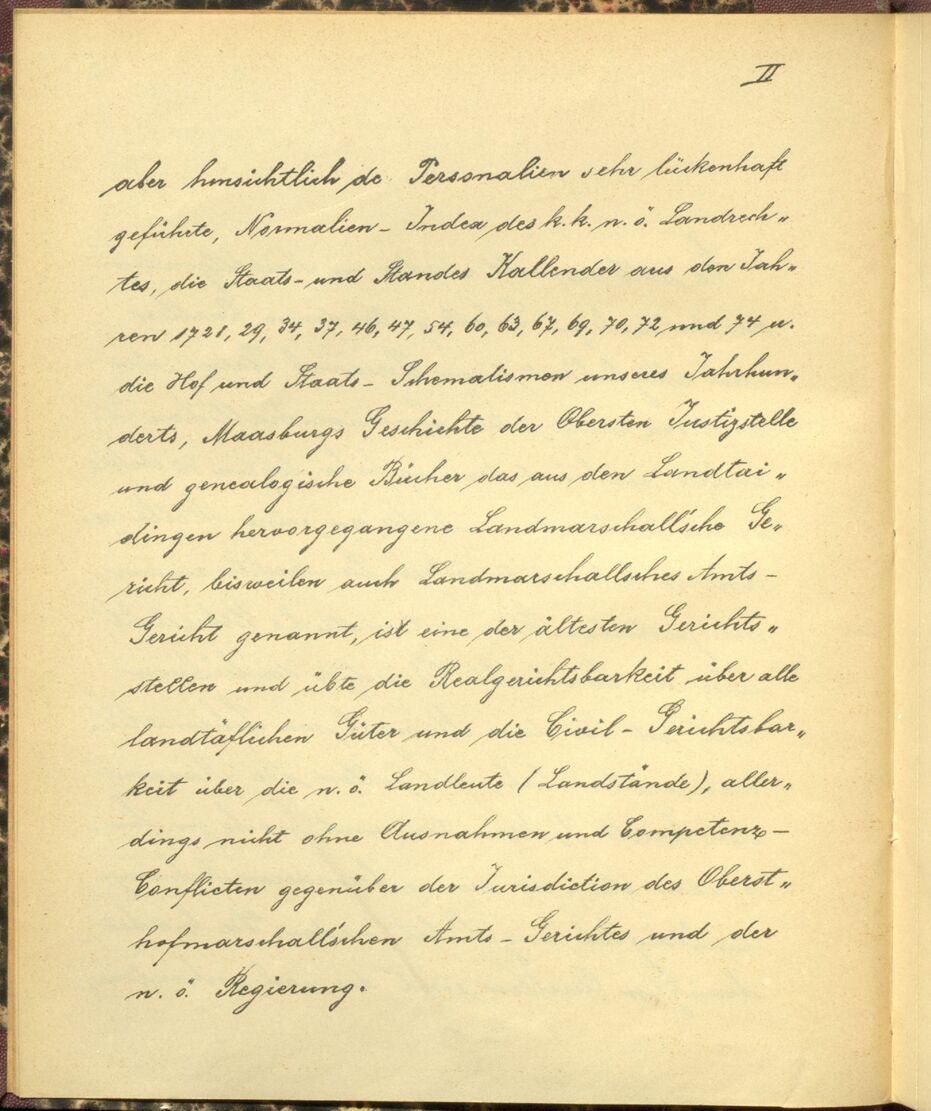 II
aber hinsichtlich de Personalien sehr lückenhaft
geführte, Normalien - Index des k. k. n. ö. Landrech„
tes, die Staats - und Standes Kallender aus den Jah„
ren 1721, 29, 34, 37, 46, 47, 54, 60, 63, 67, 69, 70, 72 und 74 u.
die Hof und Staats - Schematismen unseres Jahrhun„
derts, Maasburgs Geschichte der Obersten Justizstelle
und genealogische Bücher das aus den Landtai„
dingen hervorgegangene Landmarschall'sche Ge„
richt, bisweilen auch Landmarschallsches Amts -
Gericht genannt, ist eine der ältesten Gerichts„
stellen und übte die Realgerichtsbarkeit über alle
landtäflichen Güter und die Civil - Gerichtsbar„
keit über die n. ö. Landleute (Landstände), aller„
dings nicht ohne Ausnahmen und Competenz -
Conflicten gegenüber der Jurisdiction des Oberst„
hofmarschall'schen Amts - Gerichtes und der
n. ö. Regierung.